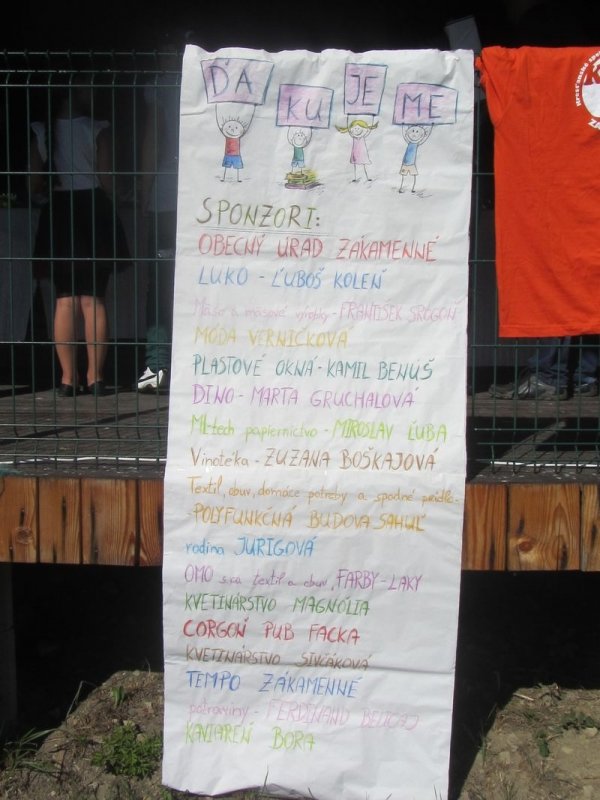 ĎAKUJEME
SPONZORI:
OBECNÝ ÚRAD ZÁKAMENNÉ
LUKO - ĽUBOŠ KOLEŇ
Mäso a mäsové výrobky - FRANTIŠEK SROGOŇ
MÓDA VERNIČKOVÁ
PLASTOVÉ OKNÁ - KAMIL BENÚŠ
DINO - MARTA GRUCHALOVÁ
ML-tech papiernictvo - MIROSLAV ĽUBA
Vinotéka - ZUZANA BOŠKAJOVÁ
Textil, obuv, domáce potreby a spodné prádlo -
POLYFUNKČNÁ BUDOVA SAHUĽ
rodina JURIGOVÁ
OMO s.r.o textil a obuv, FARBY - LAKY
KVETINÁRSTVO MAGNÓLIA
CORGOŇ PUB FACKA
KVETINÁRSTVO SIVČÁKOVÁ
TEMPO ZÁKAMENNÉ
potraviny - FERDINAND
KAVIAREŇ BORA